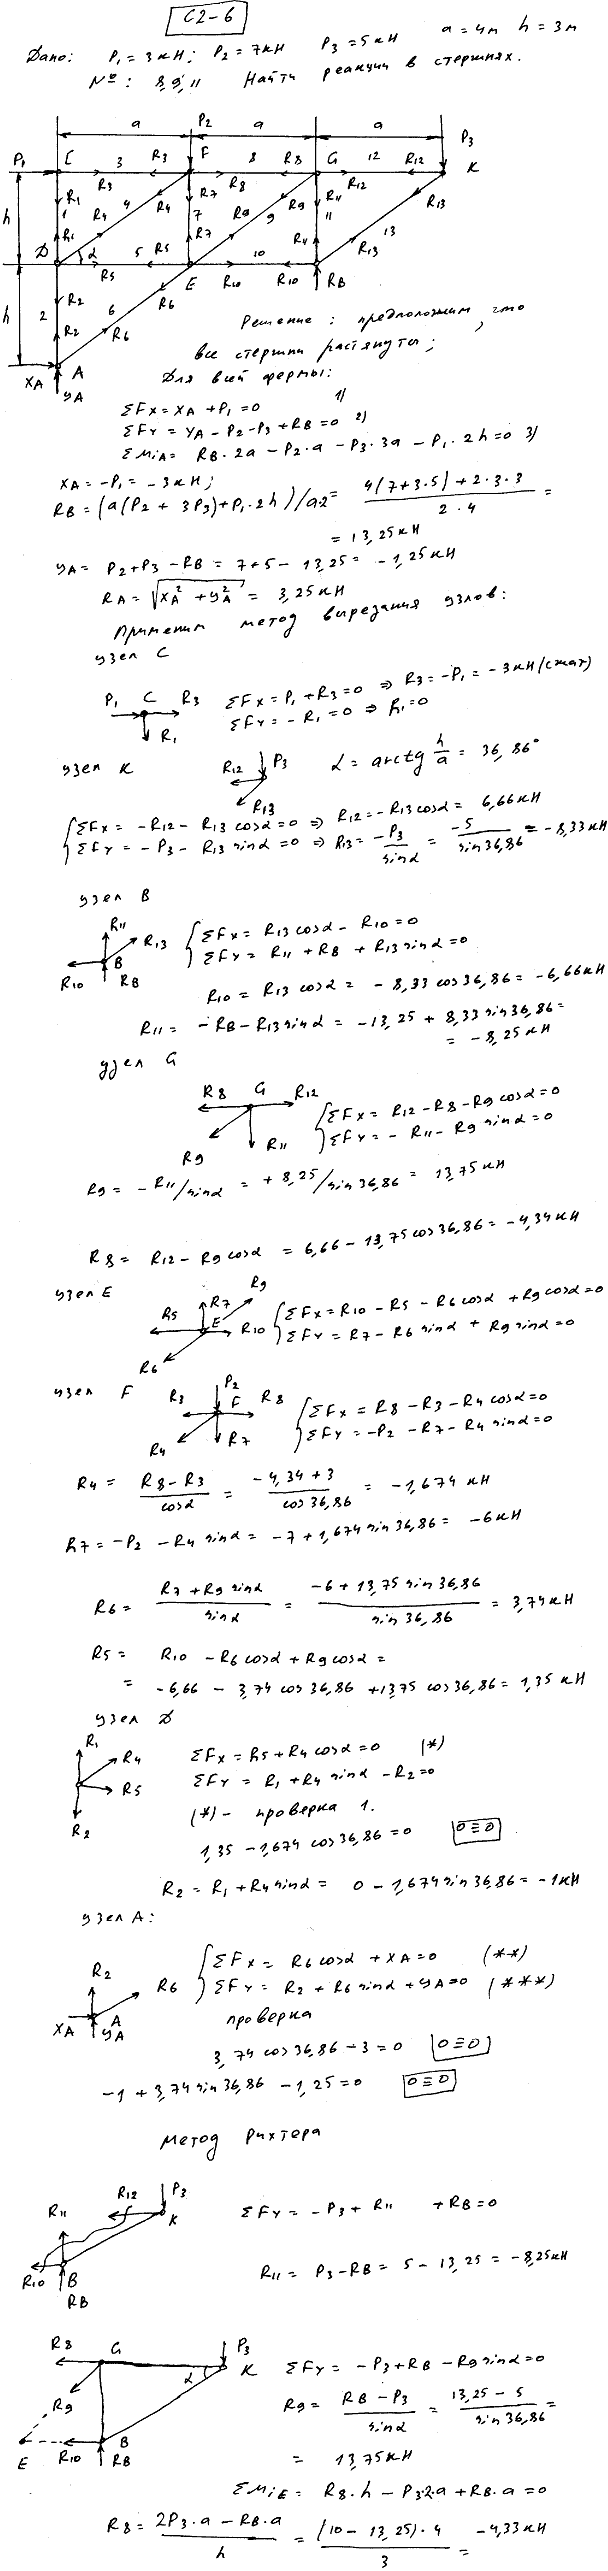 С2-6
Дано: P₁ = 3 кН; P₂ = 7 кН P₃ = 5 кН a = 4 м h = 3 м
№: 8, 9, 11 Найти реакции в стержнях.
a a a
P₂ P₃
P₁ C 3 R₃ F 8 R₈ G 12 R₁₂ K
R₃ R₈ R₁₂
R₁ R₄ 4 R₄ R₇ 7 R₉ 9 R₉ R₁₁ 11 R₁₃
h 1 R₁ R₇ R₁₁ 13 R₁₃
D α 5 R₅ 10
R₅ E R₁₀ R₁₀ RB
h 2 R₂ 6 R₆
R₂ R₆
XA A
YA
Решение: предположим, что
все стержни растянуты;
Для всей фермы:
ΣFx = XA + P₁ = 0 1)
ΣFy = YA - P₂ - P₃ + RB = 0 2)
ΣMiA = RB · 2a - P₂ · a - P₃ · 3a - P₁ · 2h = 0 3)
XA = -P₁ = -3 кН;
RB = (a(P₂ + 3P₃) + P₁ · 2h)/a2 = 4(7+3·5) + 2·3·3 / 2·4 =
= 13,25 кН
YA = P₂ + P₃ - RB = 7 + 5 - 13,25 = -1,25 кН
RA = √(XA² + YA²) = 3,25 кН
Применим метод вырезания узлов:
узел C
P₁ C R₃ ΣFx = P₁ + R₃ = 0 ⇒ R₃ = -P₁ = -3 кН (сжат)
R₁ ΣFy = -R₁ = 0 ⇒ R₁ = 0
узел K R₁₂ P₃ α = arctg h/a = 36,86°
R₁₃
ΣFx = -R₁₂ - R₁₃ cosα = 0 ⇒ R₁₂ = -R₁₃ cosα = 6,66 кН
ΣFy = -P₃ - R₁₃ sinα = 0 ⇒ R₁₃ = -P₃/sinα = -5/sin 36,86 = -8,33 кН
узел B
R₁₁ R₁₃ ΣFx = R₁₃ cosα - R₁₀ = 0
R₁₀ B RB ΣFy = R₁₁ + RB + R₁₃ sinα = 0
R₁₀ = R₁₃ cosα = -8,33 cos 36,86 = -6,66 кН
R₁₁ = -RB - R₁₃ sinα = -13,25 + 8,33 sin 36,86 =
= -8,25 кН
узел G
R₈ G R₁₂ ΣFx = R₁₂ - R₈ - R₉ cosα = 0
R₉ R₁₁ ΣFy = -R₁₁ - R₉ sinα = 0
R₉ = -R₁₁/sinα = +8,25/sin 36,86 = 13,75 кН
R₈ = R₁₂ - R₉ cosα = 6,66 - 13,75 cos 36,86 = -4,34 кН
узел E
R₅ R₇ R₉ ΣFx = R₁₀ - R₅ - R₆ cosα + R₉ cosα = 0
R₆ E R₁₀ ΣFy = R₇ - R₆ sinα + R₉ sinα = 0
узел F R₃ P₂ F R₈ ΣFx = R₈ - R₃ - R₄ cosα = 0
R₄ R₇ ΣFy = -P₂ - R₇ - R₄ sinα = 0
R₄ = R₈ - R₃ / cosα = -4,34 + 3 / cos 36,86 = -1,674 кН
R₇ = -P₂ - R₄ sinα = -7 + 1,674 sin 36,86 = -6 кН
R₆ = R₇ + R₉ sinα / sinα = -6 + 13,75 sin 36,86 / sin 36,86 = 3,74 кН
R₅ = R₁₀ - R₆ cosα + R₉ cosα =
= -6,66 - 3,74 cos 36,86 + 13,75 cos 36,86 = 1,35 кН
узел D
R₁ R₄ ΣFx = R₅ + R₄ cosα = 0 (*)
R₅ ΣFy = R₁ + R₄ sinα - R₂ = 0
R₂ (*) - проверка 1.
1,35 - 1,674 cos 36,86 = 0 0 ≡ 0
R₂ = R₁ + R₄ sinα = 0 - 1,674 sin 36,86 = -1 кН
узел A:
R₂ R₆ ΣFx = R₆ cosα + XA = 0 (**)
XA A YA ΣFy = R₂ + R₆ sinα + YA = 0 (***)
проверка
3,74 cos 36,86 - 3 = 0 0 ≡ 0
-1 + 3,74 sin 36,86 - 1,25 = 0 0 ≡ 0
Метод Рихтера
R₁₁ R₁₂ P₃ K ΣFy = -P₃ + R₁₁ + RB = 0
R₁₀ B RB R₁₁ = P₃ - RB = 5 - 13,25 = -8,25 кН
R₈ G P₃ α K ΣFy = -P₃ + RB - R₉ sinα = 0
R₉ R₉ = RB - P₃ / sinα = 13,25 - 5 / sin 36,86 =
E R₁₀ B RB = 13,75 кН
ΣMiE = R₈ · h - P₃ · 2 · a + RB · a = 0
R₈ = 2P₃ · a - RB · a / h = (10 - 13,25) · 4 / 3 = -4,33 кН